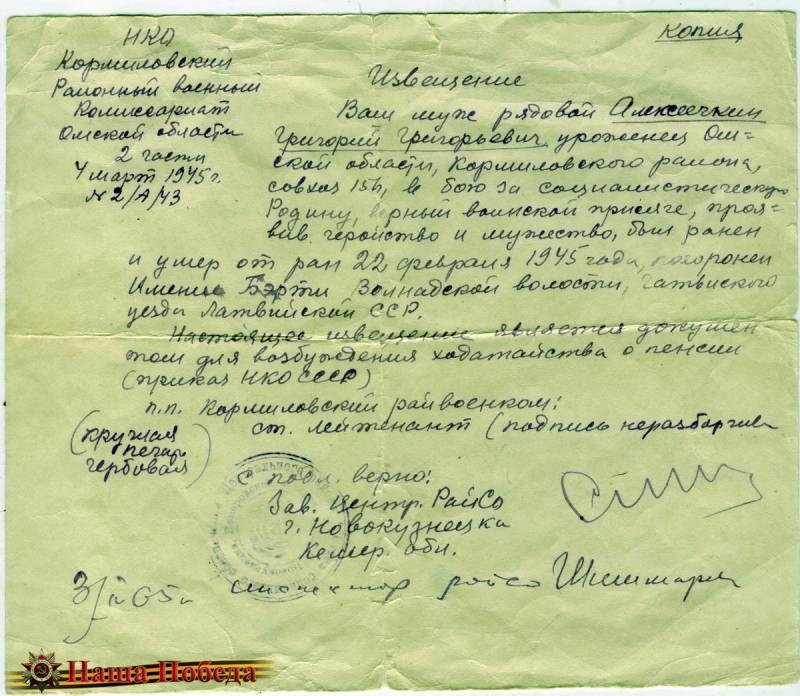 НКО
Кормиловский
Районный военный
Комиссариат
Омской области
2 части
4 март 1945 г.
№ 2/А/43
Копия
Извещение
Ваш муж рядовой Алексеечкин
Григорий Григорьевич, уроженец Ом-
ской области, Кормиловского района,
совхоз 156, в бою за социалистическую
Родину, верный воинской присяге, проя-
вив геройство и мужество, был ранен
и умер от ран 22 февраля 1945 года, похоронен
Имение Бэрти Вайнадской волости,
уезда Латвийской ССР.
Настоящее извещение является докумен
том для возбуждения ходатайства о пенсии
(приказ НКО СССР)
п.п. Кормиловский райвоенком:
ст. лейтенант (подпись неразборчива
(круглая
печать
гербовая)
с подл. верно:
Зав. Центр. РайСо
г. Новокузнецка
Кемер. обл.
райсо
Наша Победа